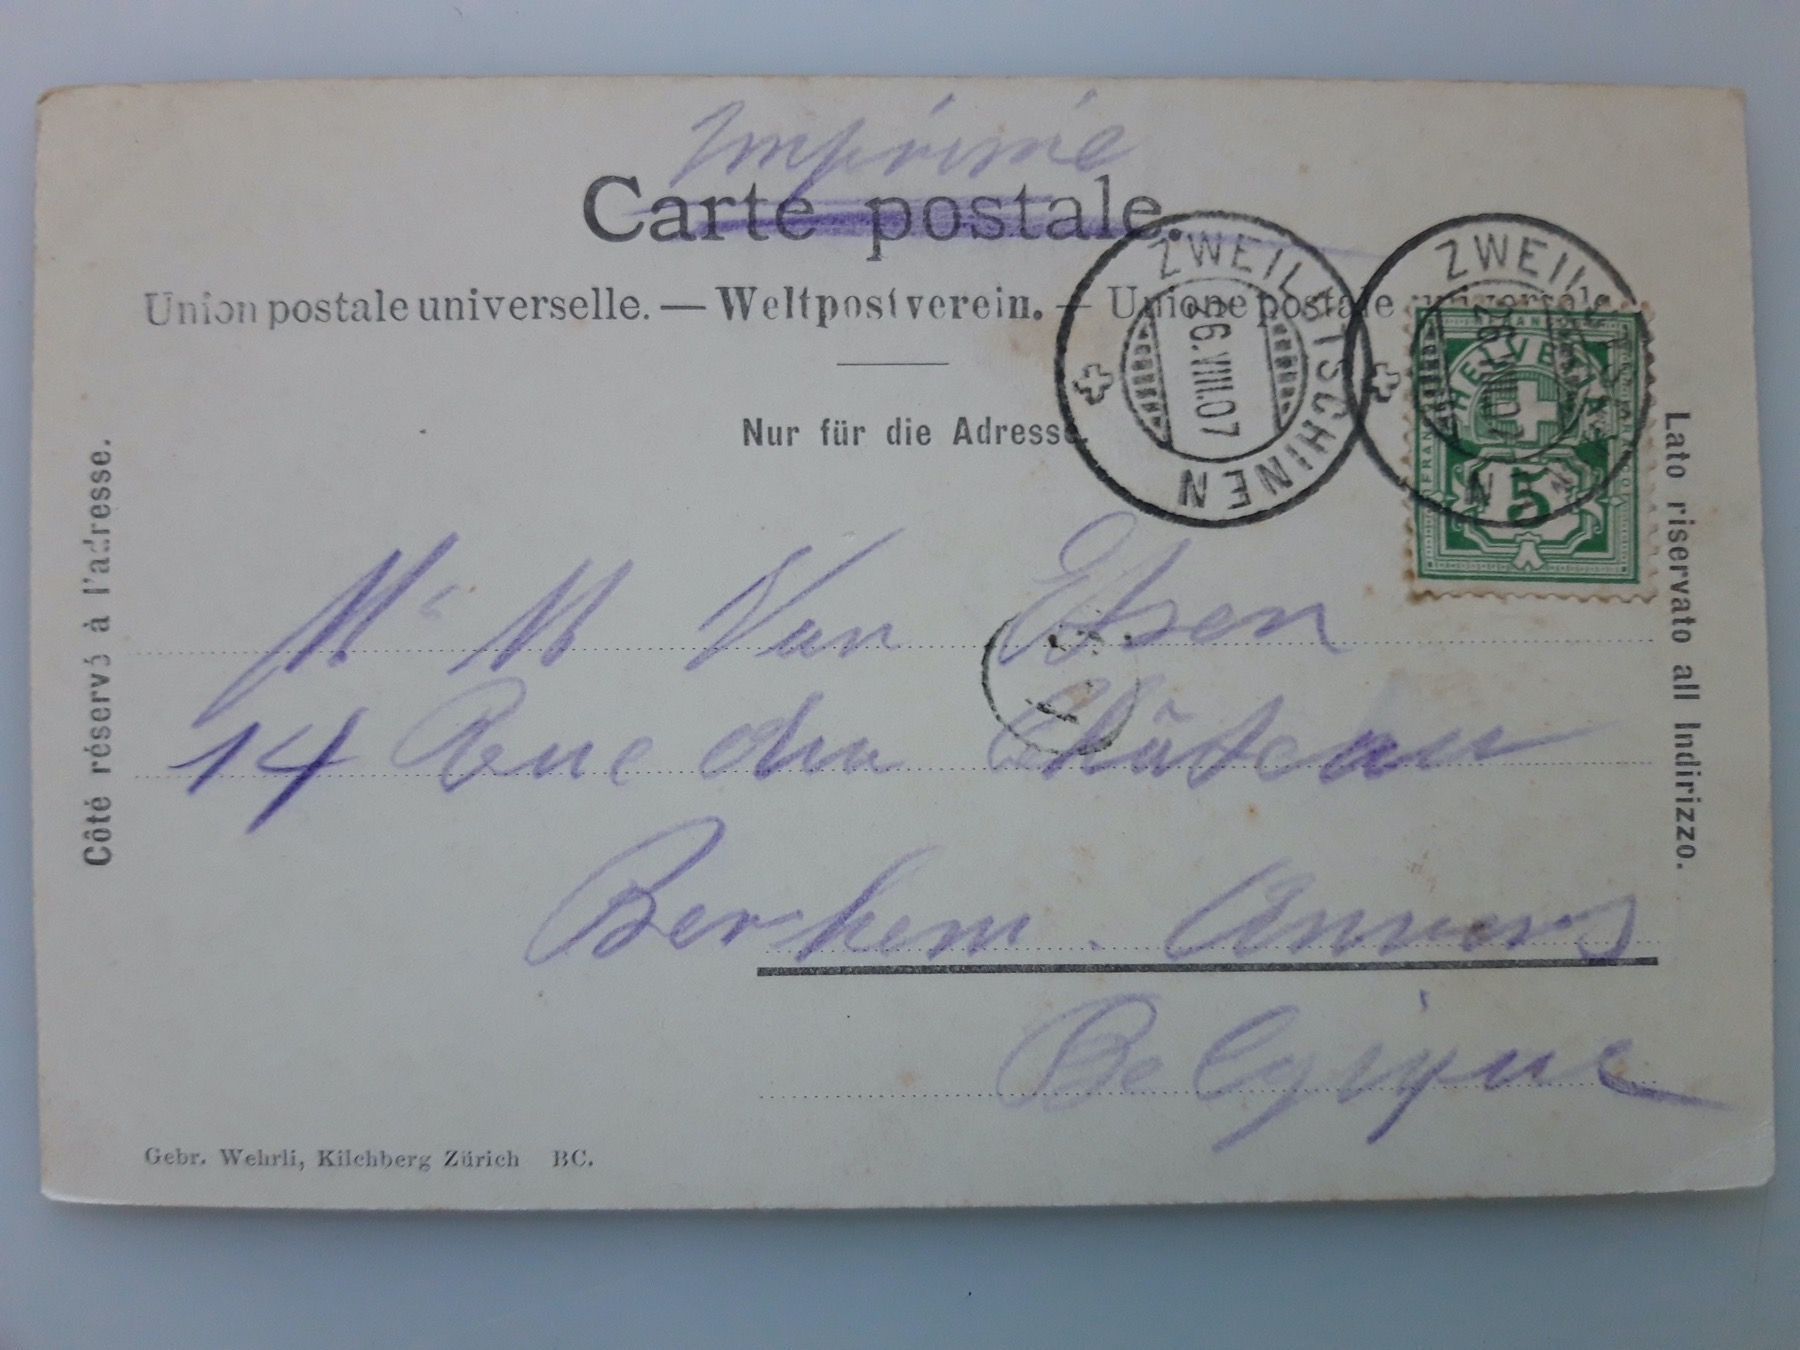 Imprimé
Carte postale.
Union postale universelle. — Weltpostverein. — Unione postale universale
Nur für die Adresse.
Côté réservé à l'adresse.
Lato riservato all Indirizzo.
ZWEILÜTSCHINEN
26.VIII.07
ZWEILÜTSCHINEN
26.VIII.07
FRANCO
HELVETIA
5
Mr M Van Elsen
14 Rue du Château
Berchem. Anvers
Belgique
Gebr. Wehrli, Kilchberg Zürich BC.